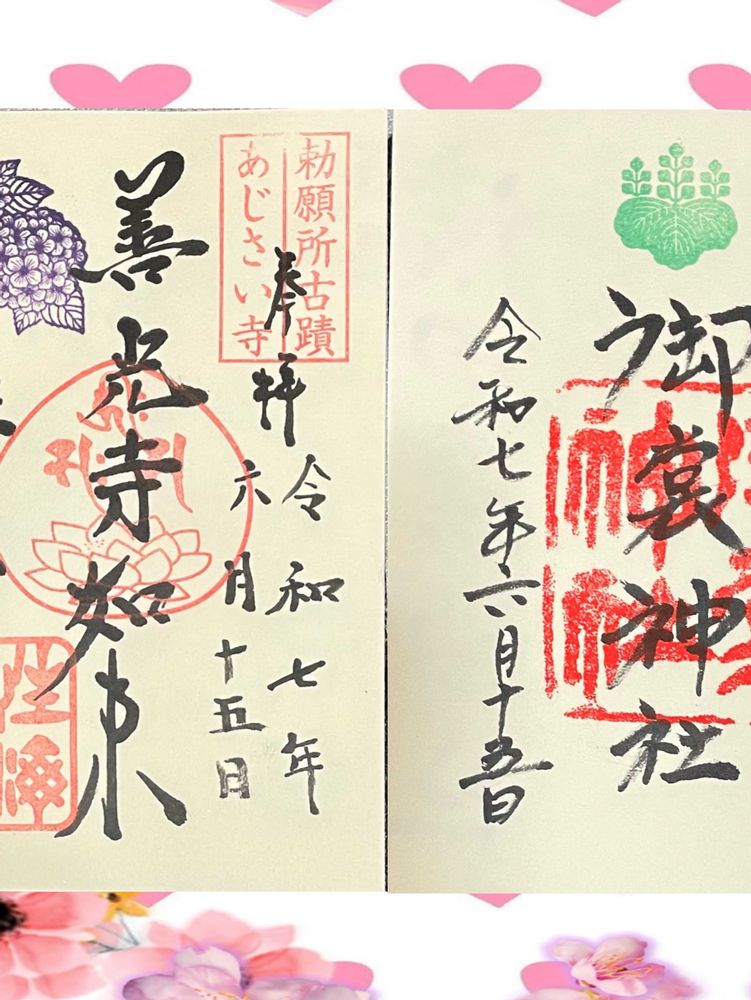 御裳神社
令和七年六月十五日
勅願所古蹟
あじさい寺
奉拝
令和七年
六月十五日
善光寺如来